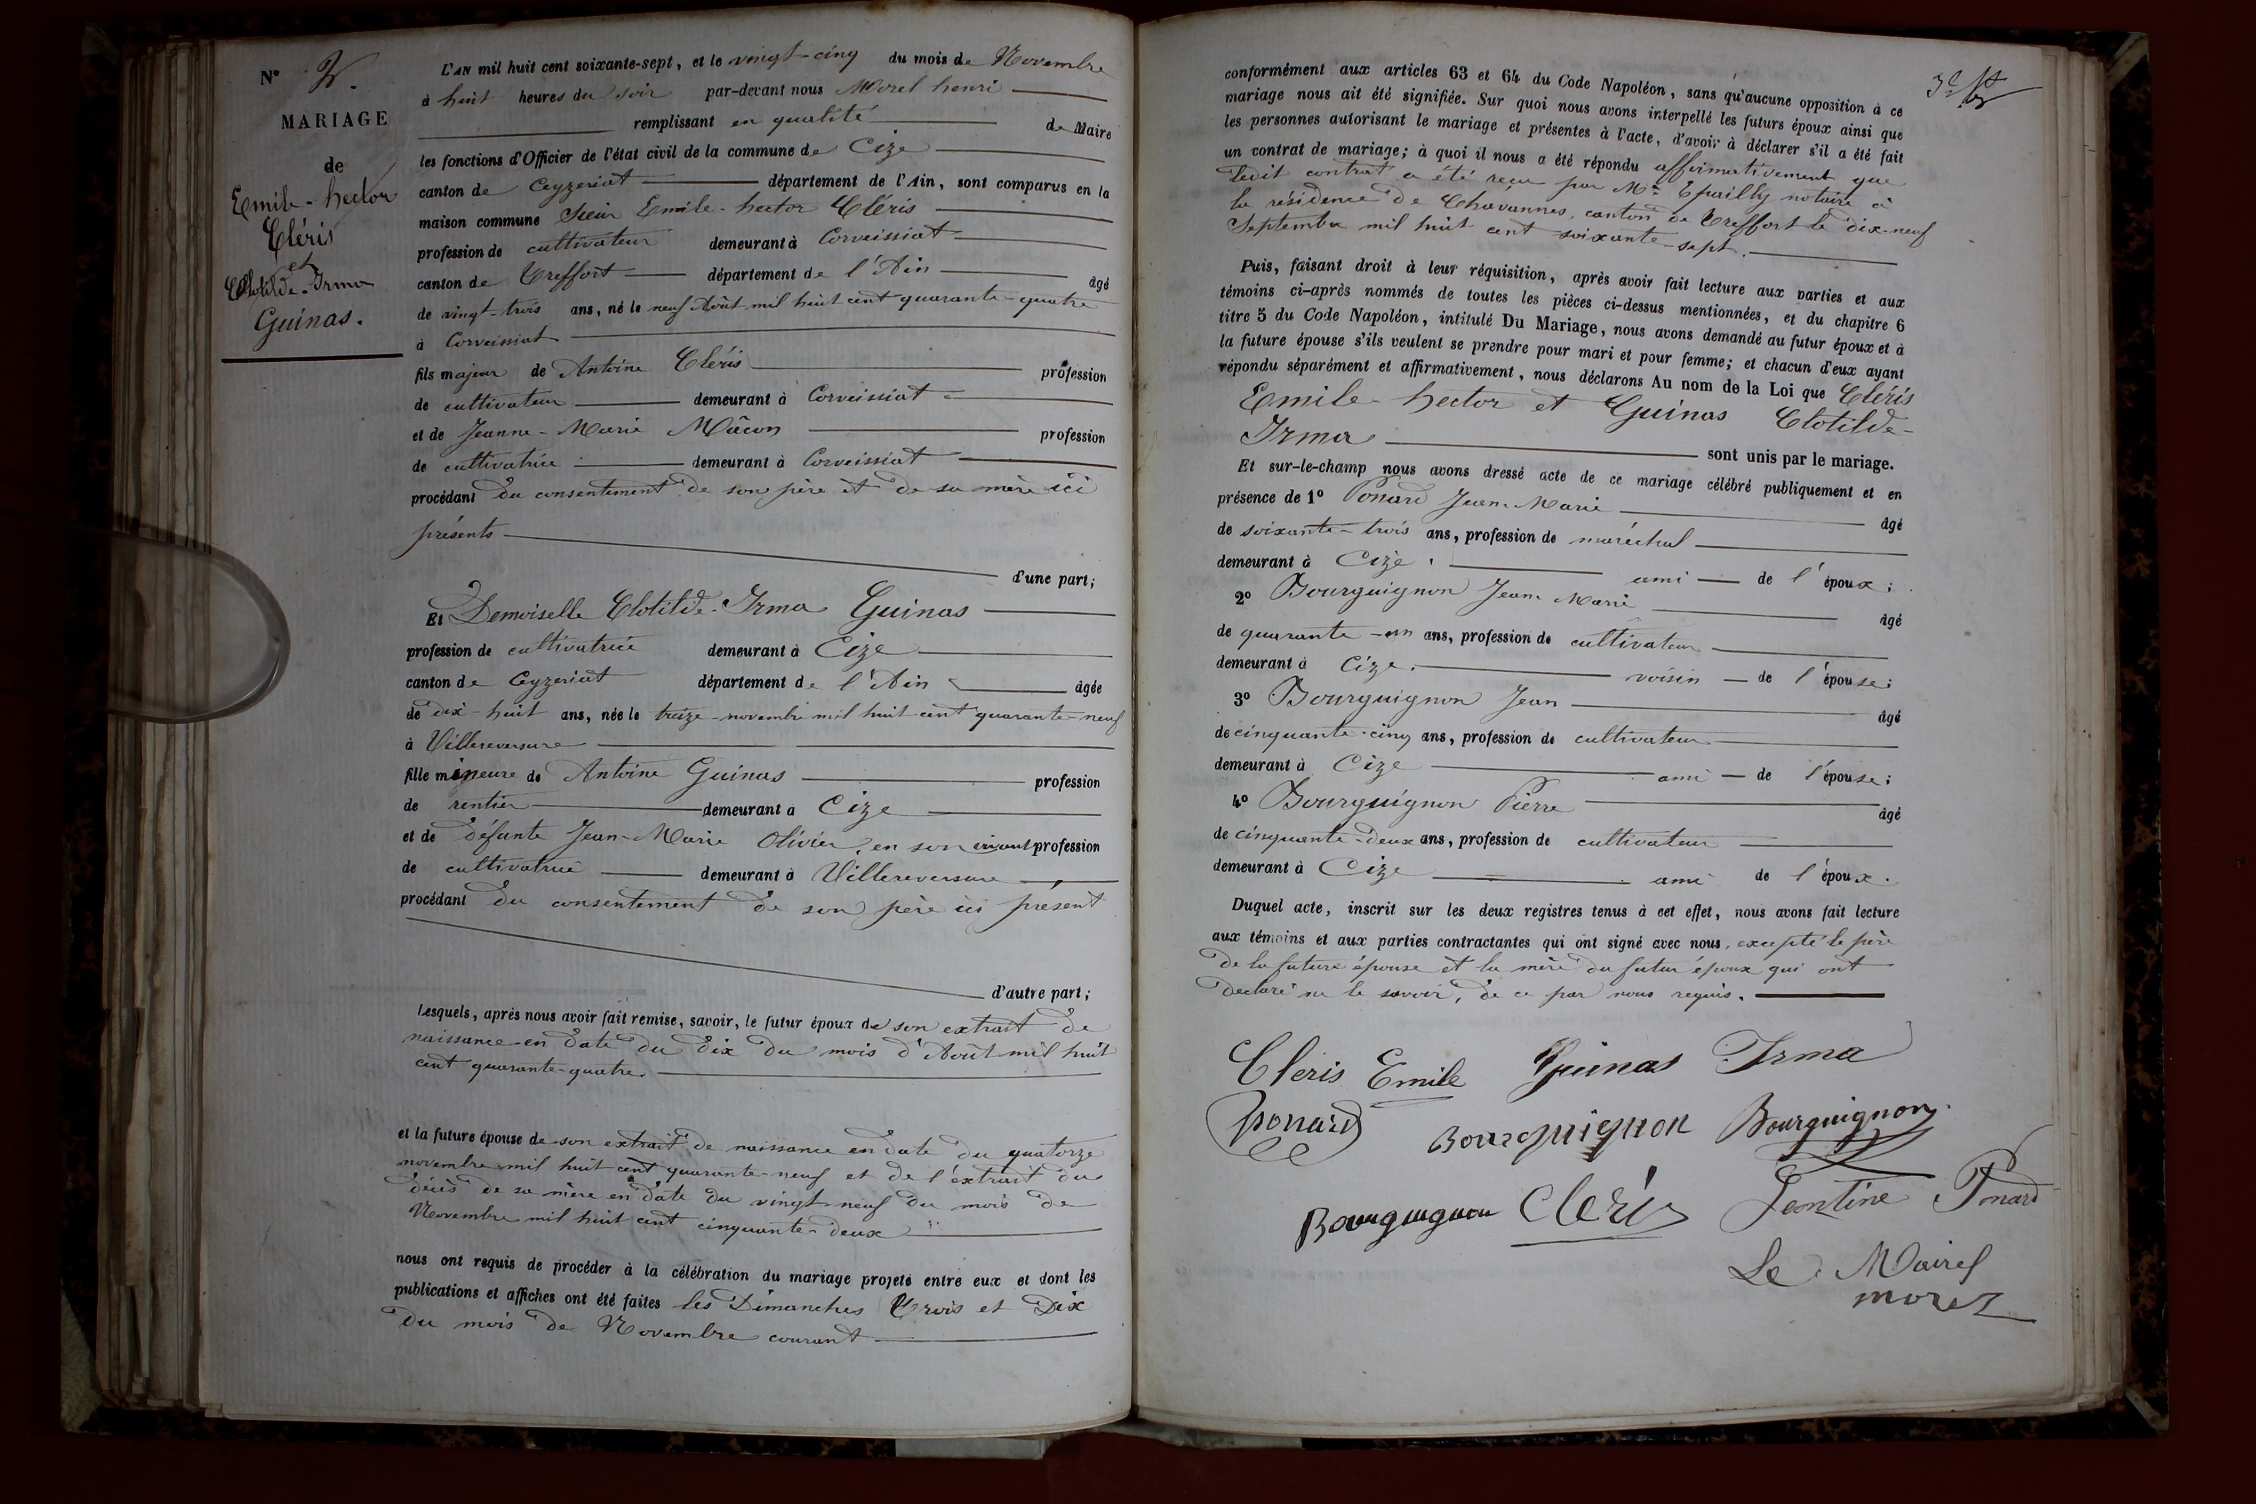 N°
MARIAGE
de
Emile-hector
Cléris
et
Clotilde-Irma
Guinas.
L'AN mil huit cent soixante-sept, et le vingt-cinq du mois de Novembre
à huit heures du soir par-devant nous Morel henri
remplissant en qualité de Maire
les fonctions d'Officier de l'état civil de la commune de Cize
canton de Ceyzeriat département de l'Ain, sont comparus en la
maison commune Sieur Emile-hector Cléris
profession de cultivateur demeurant à Corveissiat
canton de Treffort département de l'Ain âgé
de vingt-trois ans, né le neuf Août mil huit cent quarante-quatre
à Corveissiat
fils majeur de Antoine Cléris profession
de cultivateur demeurant à Corveissiat
et de Jeanne-Marie Mâcon profession
de cultivatrice demeurant à Corveissiat
procédant du consentement de son père et de sa mère ici
présents
d'une part;
Et Demoiselle Clotilde-Irma Guinas
profession de cultivatrice demeurant à Cize
canton de Ceyzeriat département de l'Ain âgée
de dix-huit ans, née le treize novembre mil huit cent quarante-neuf
à Villereversure
fille mineure de Antoine Guinas profession
de rentier demeurant a Cize
et de défunte Jean-Marie Olivier, en son vivant profession
de cultivatrice demeurant à Villereversure
procédant du consentement de son père ici présent
d'autre part;
Lesquels, après nous avoir fait remise, savoir, le futur époux de son extrait de
naissance en date du dix du mois d'Août mil huit
cent quarante-quatre.
et la future épouse de son extrait de naissance en date du quatorze
novembre mil huit cent quarante-neuf et de l'extrait du
décès de sa mère en date du vingt neuf du mois de
Novembre mil huit cent cinquante-deux
nous ont requis de procéder à la célébration du mariage projeté entre eux et dont les
publications et affiches ont été faites les Dimanches Trois et Dix
du mois de Novembre courant
conformément aux articles 63 et 64 du Code Napoléon, sans qu'aucune opposition à ce
mariage nous ait été signifiée. Sur quoi nous avons interpellé les futurs époux ainsi que
les personnes autorisant le mariage et présentes à l'acte, d'avoir à déclarer s'il a été fait
un contrat de mariage; à quoi il nous a été répondu affirmativement que
ledit contrat a été reçu par Me Epailly notaire à
la résidence de Chavannes, canton de Treffort le dix-neuf
Septembre mil huit cent soixante-sept.
Puis, faisant droit à leur réquisition, après avoir fait lecture aux parties et aux
témoins ci-après nommés de toutes les pièces ci-dessus mentionnées, et du chapitre 6
titre 5 du Code Napoléon, intitulé Du Mariage, nous avons demandé au futur époux et à
la future épouse s'ils veulent se prendre pour mari et pour femme; et chacun d'eux ayant
répondu séparément et affirmativement, nous déclarons Au nom de la Loi que Cléris
Emile-hector et Guinas Clotilde-
Irma sont unis par le mariage.
Et sur-le-champ nous avons dressé acte de ce mariage célébré publiquement et en
présence de 1° Ponard Jean-Marie âgé
de soixante-trois ans, profession de maréchal
demeurant à Cize ami de l'époux;
2° Bourguignon Jean Marie âgé
de quarante-un ans, profession de cultivateur
demeurant à Cize. voisin de l'épouse;
3° Bourguignon Jean âgé
de cinquante-cinq ans, profession de cultivateur
demeurant à Cize ami de l'épouse;
4° Bourguignon Pierre âgé
de cinquante-deux ans, profession de cultivateur
demeurant à Cize ami de l'époux.
Duquel acte, inscrit sur les deux registres tenus à cet effet, nous avons fait lecture
aux témoins et aux parties contractantes qui ont signé avec nous, excepté le père
de la future épouse et la mère du futur époux qui ont
déclaré ne le savoir, de ce par nous requis.
Cléris Emile Guinas Irma
Ponard Bourguignon Bourguignon
Bourguignon Cléris Léontine Ponard
Le Maire
morel